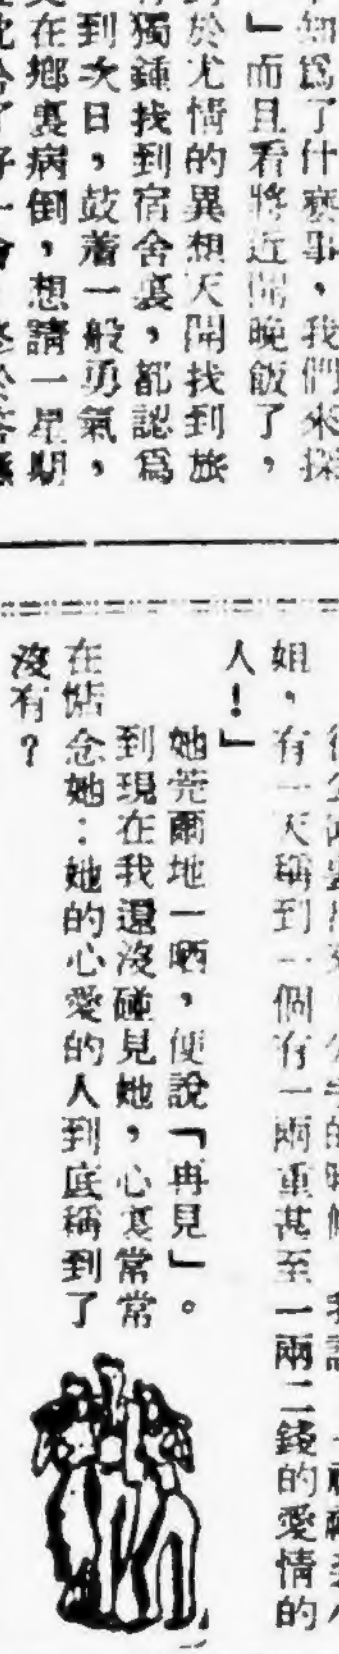 知爲了什麽事，我們來探
」而且看將近開晚飯了，
於尤情的異想天開找到旅
獨鍾找到宿舍裏，都認爲
到次日，鼓着一般勇氣，
在鄉裏病倒，想請一星期
姐，有一天稱到一個有一兩重甚至一兩二錢的愛情的
人！」
她莞爾地一哂，便說「再見」。
到現在我還沒碰見她，心裏常常
在惦念她：她的心愛的人到底稱到了
沒有？